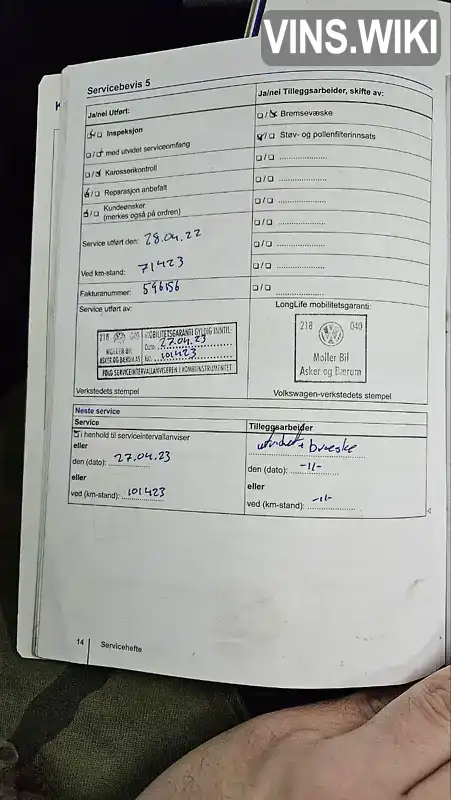 VINS.WIKI
Servicebevis 5
Ja/nei Utført:
Inspeksjon
med utvidet serviceomfang
Karosserikontroll
Reparasjon anbefalt
Kundeønsker
(merkes også på ordren)
Service utført den: 28.04.22
Ved km-stand: 71423
Fakturanummer: 596156
Ja/nei Tilleggsarbeider, skifte av:
Bremsevæske
Støv- og pollenfilterinnsats
Service utført av:
218 040 MOBILITETSGARANTI GYLDIG INNTIL:
Dato: 27.04.23
MØLLER BIL Km: 101423
ASKER OG BÆRUM AS
FØLG SERVICEINTERVALLANVISEREN I KOMBIINSTRUMENTET
Verkstedets stempel
LongLife mobilitetsgaranti:
218 040
Møller Bil
Asker og Bærum
Volkswagen-verkstedets stempel
Neste service
Service
i henhold til serviceintervallanviser
eller
den (dato): 27.04.23
eller
ved (km-stand): 101423
Tilleggsarbeider
utvidet+
den (dato): -11-
eller
ved (km-stand): -11-
14 Servicehefte